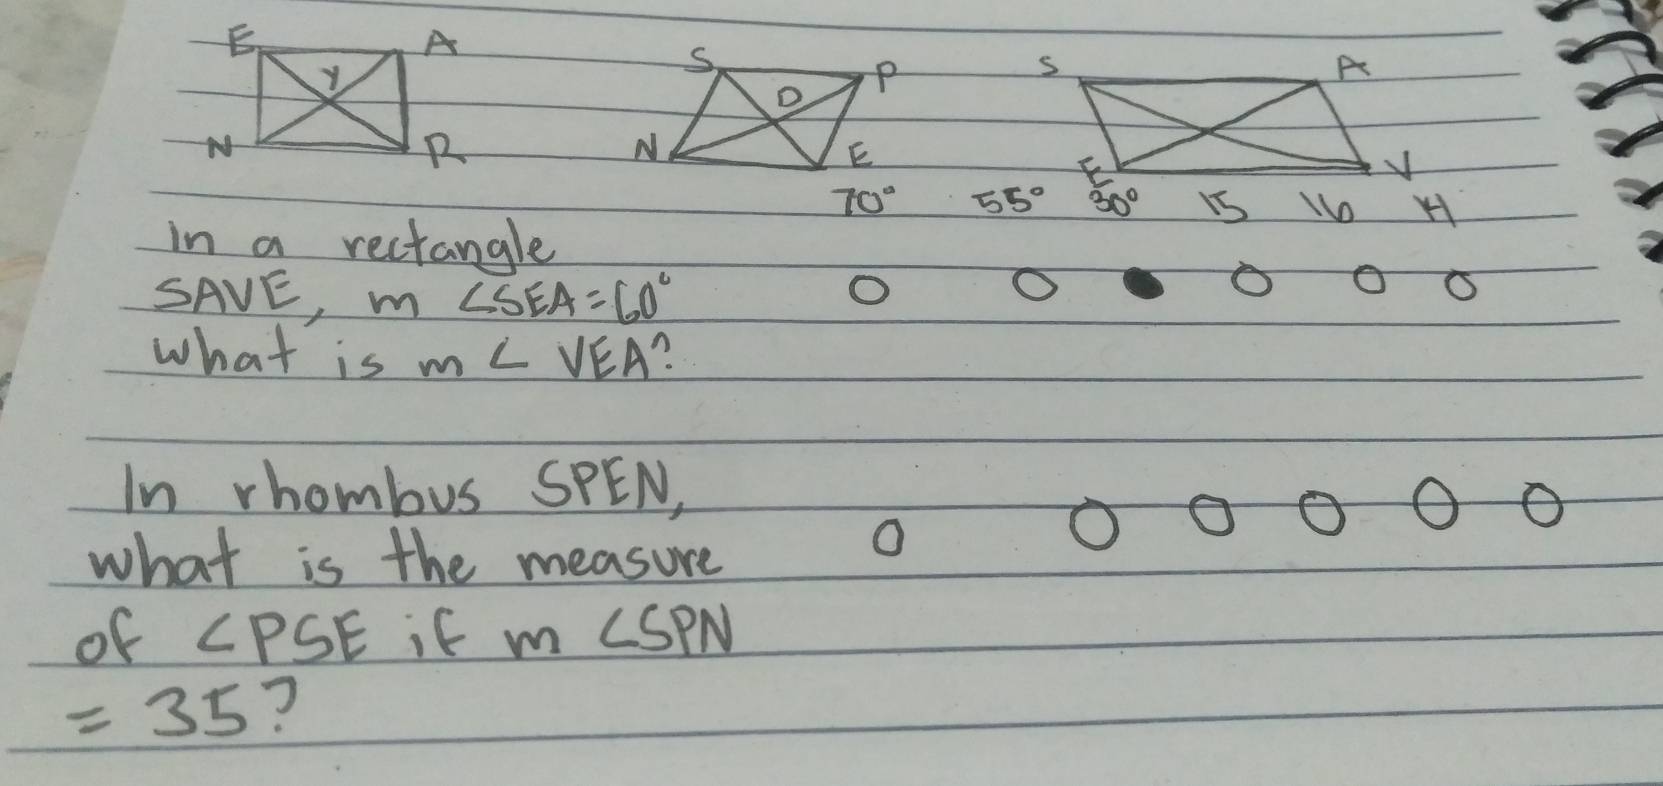 E A S P S A
Y D
N R N E E V
70° 55° 30° 15 16 14
In a rectangle
SAVE, m ∠SEA = 60°
what is m ∠ VEA?
In rhombus SPEN,
what is the measure
of ∠PSE if m ∠SPN
= 35?